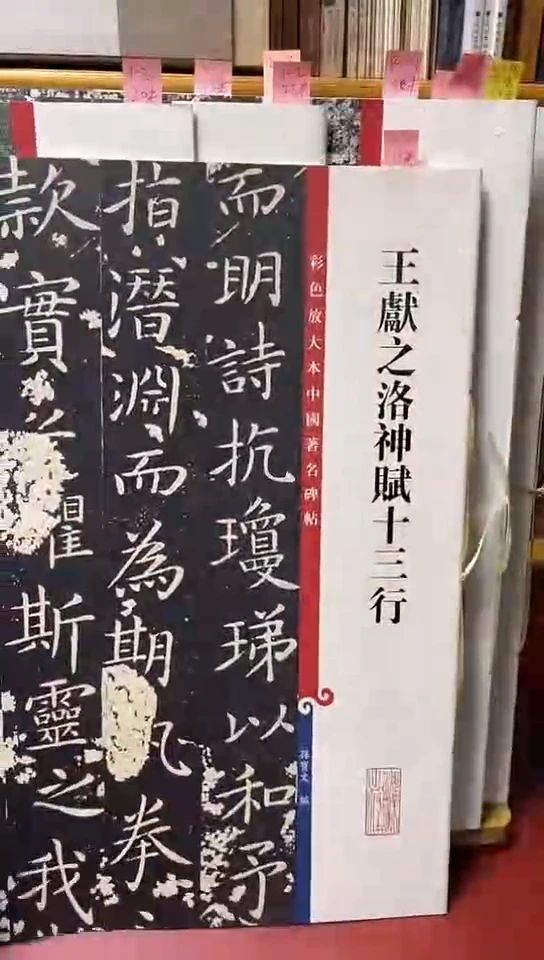 王獻之洛神賦十三行
彩色放大本中國著名碑帖
孫寶文 編
而明詩抗瓊珶以和予
指潛淵而為期
拳
款實
斯靈之我